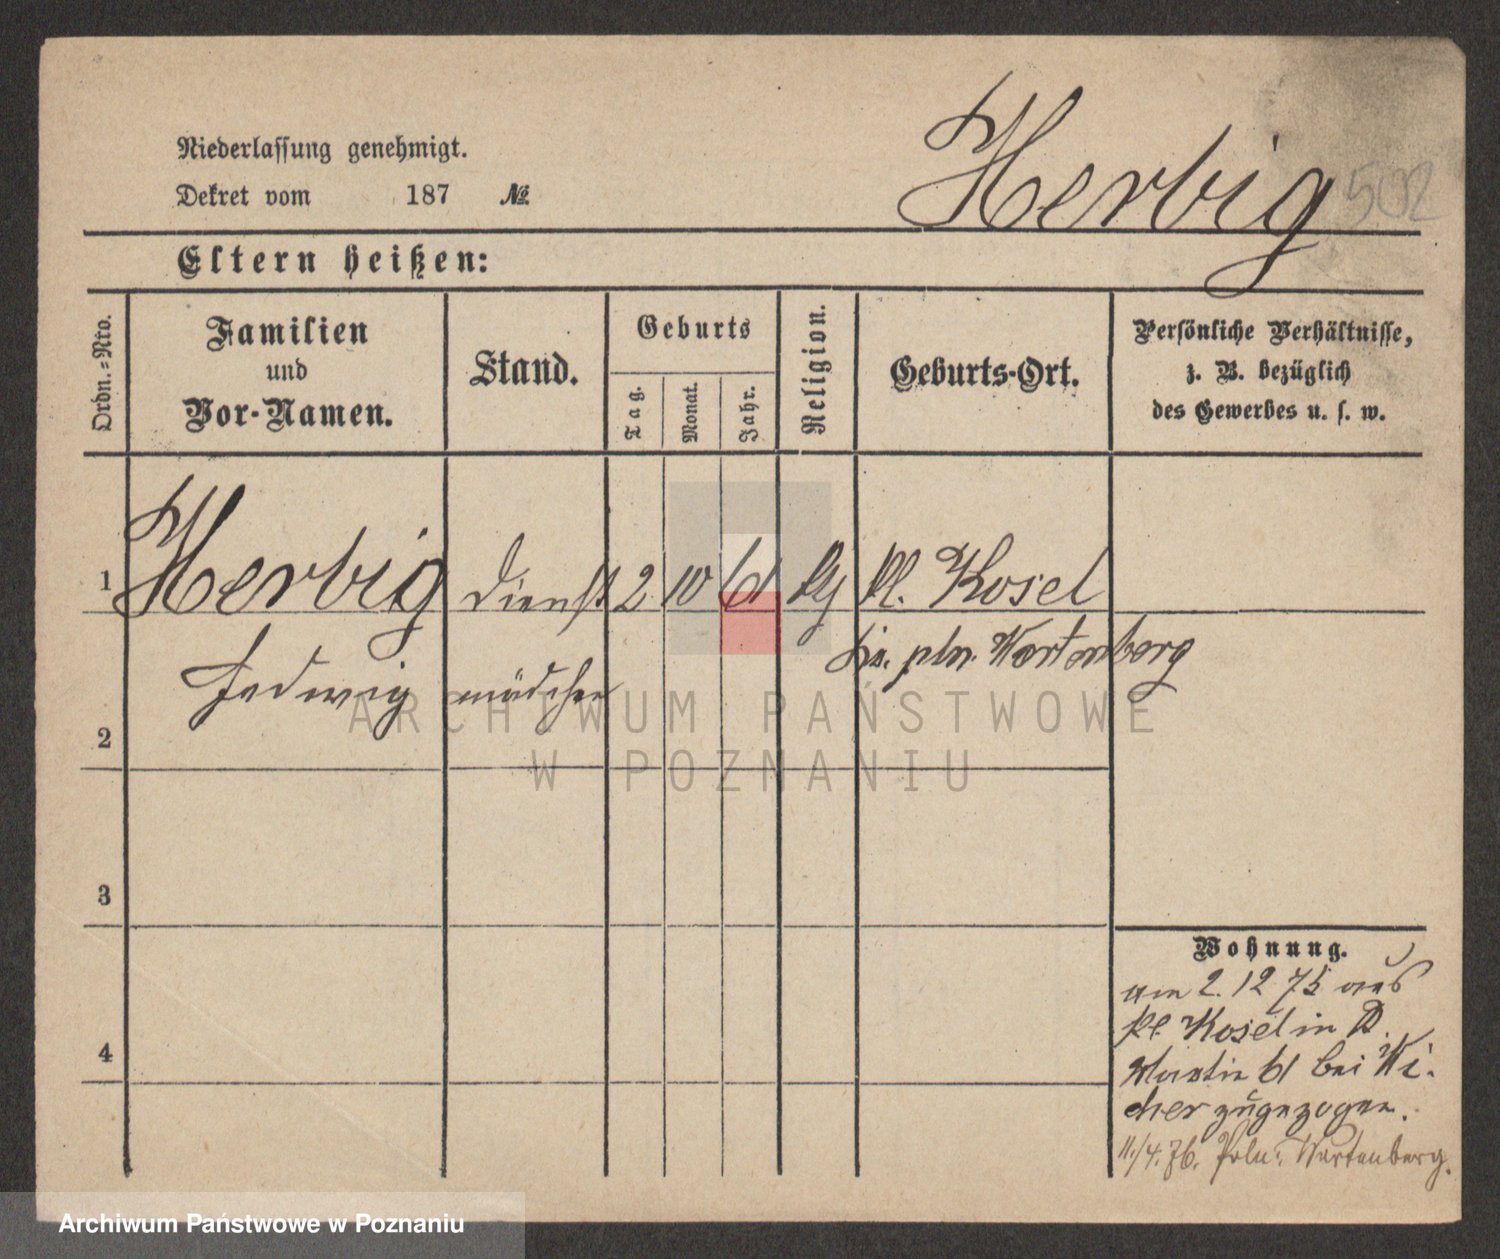 Herbig 502
Niederlassung genehmigt.
Dekret vom 187 №
Eltern heißen:
Ordn.-Nro.
Familien
und
Vor-Namen.
Stand.
Geburts
Tag.
Monat.
Jahr.
Religion.
Geburts-Ort.
Persönliche Verhältnisse,
z. B. bezüglich
des Gewerbes u. s. w.
1 Herbig Dienst 2 10 61 kg kl. Kosel
Hedwig mädchen
Krs. pln. Wartenberg
2
3
4
Wohnung.
am 2. 12 75 aus
kl Kosel in St.
Martin 61 bei Wi-
cher zugezogen.
11./4. 76. Poln: Wartenberg.
ARCHIWUM PAŃSTWOWE
W POZNANIU
Archiwum Państwowe w Poznaniu